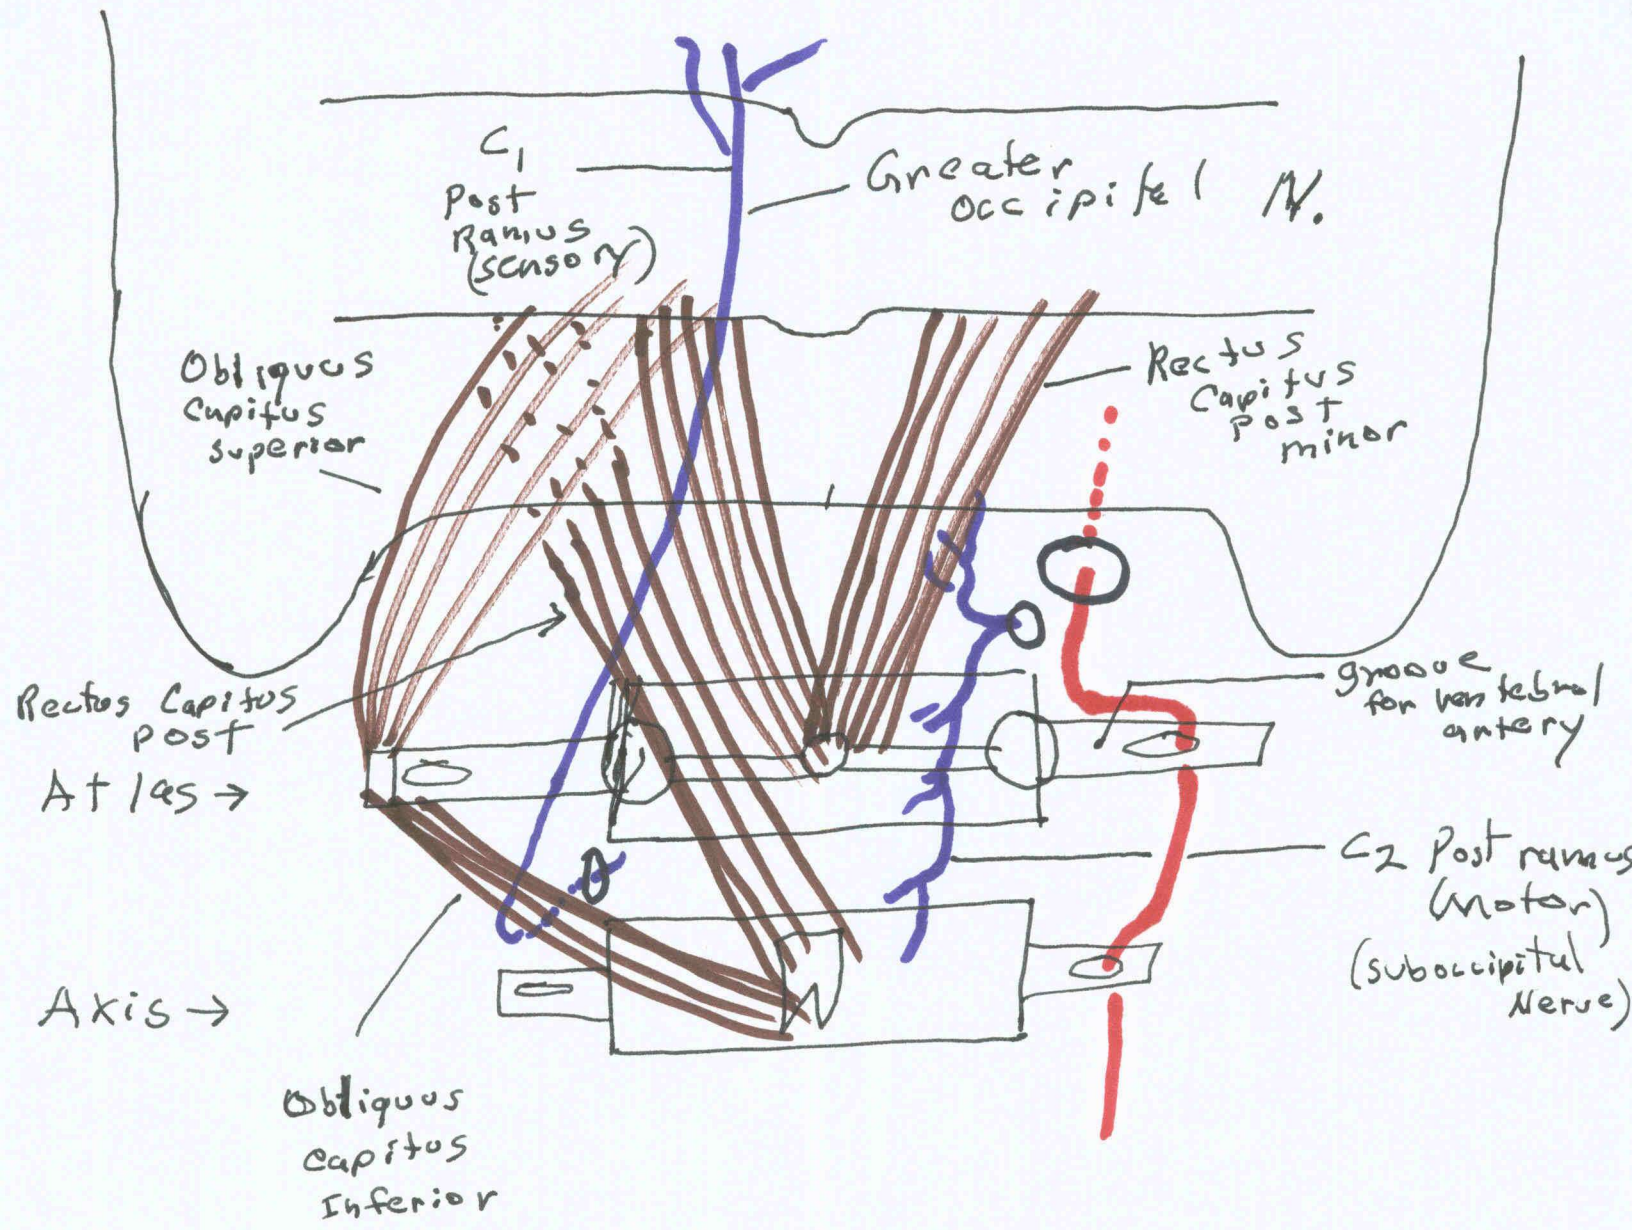 C1
Post
Ramus
(sensory)
Greater
occipitel N.
Obliquus
Capitus
superior
Rectus
Capitus
Post
minor
Rectus Capitus
Post
groove
for vertebral
artery
Atlas →
C2 Post ramus
(motor)
(suboccipital
Nerve)
Axis →
Obliquus
Capitus
Inferior